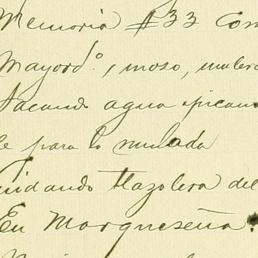 Memoria #33 Com
Mayord.º 1 moso, mulero
Sacando agua picand
le para la mulada
uidando tlazolera del
En Marqueseña